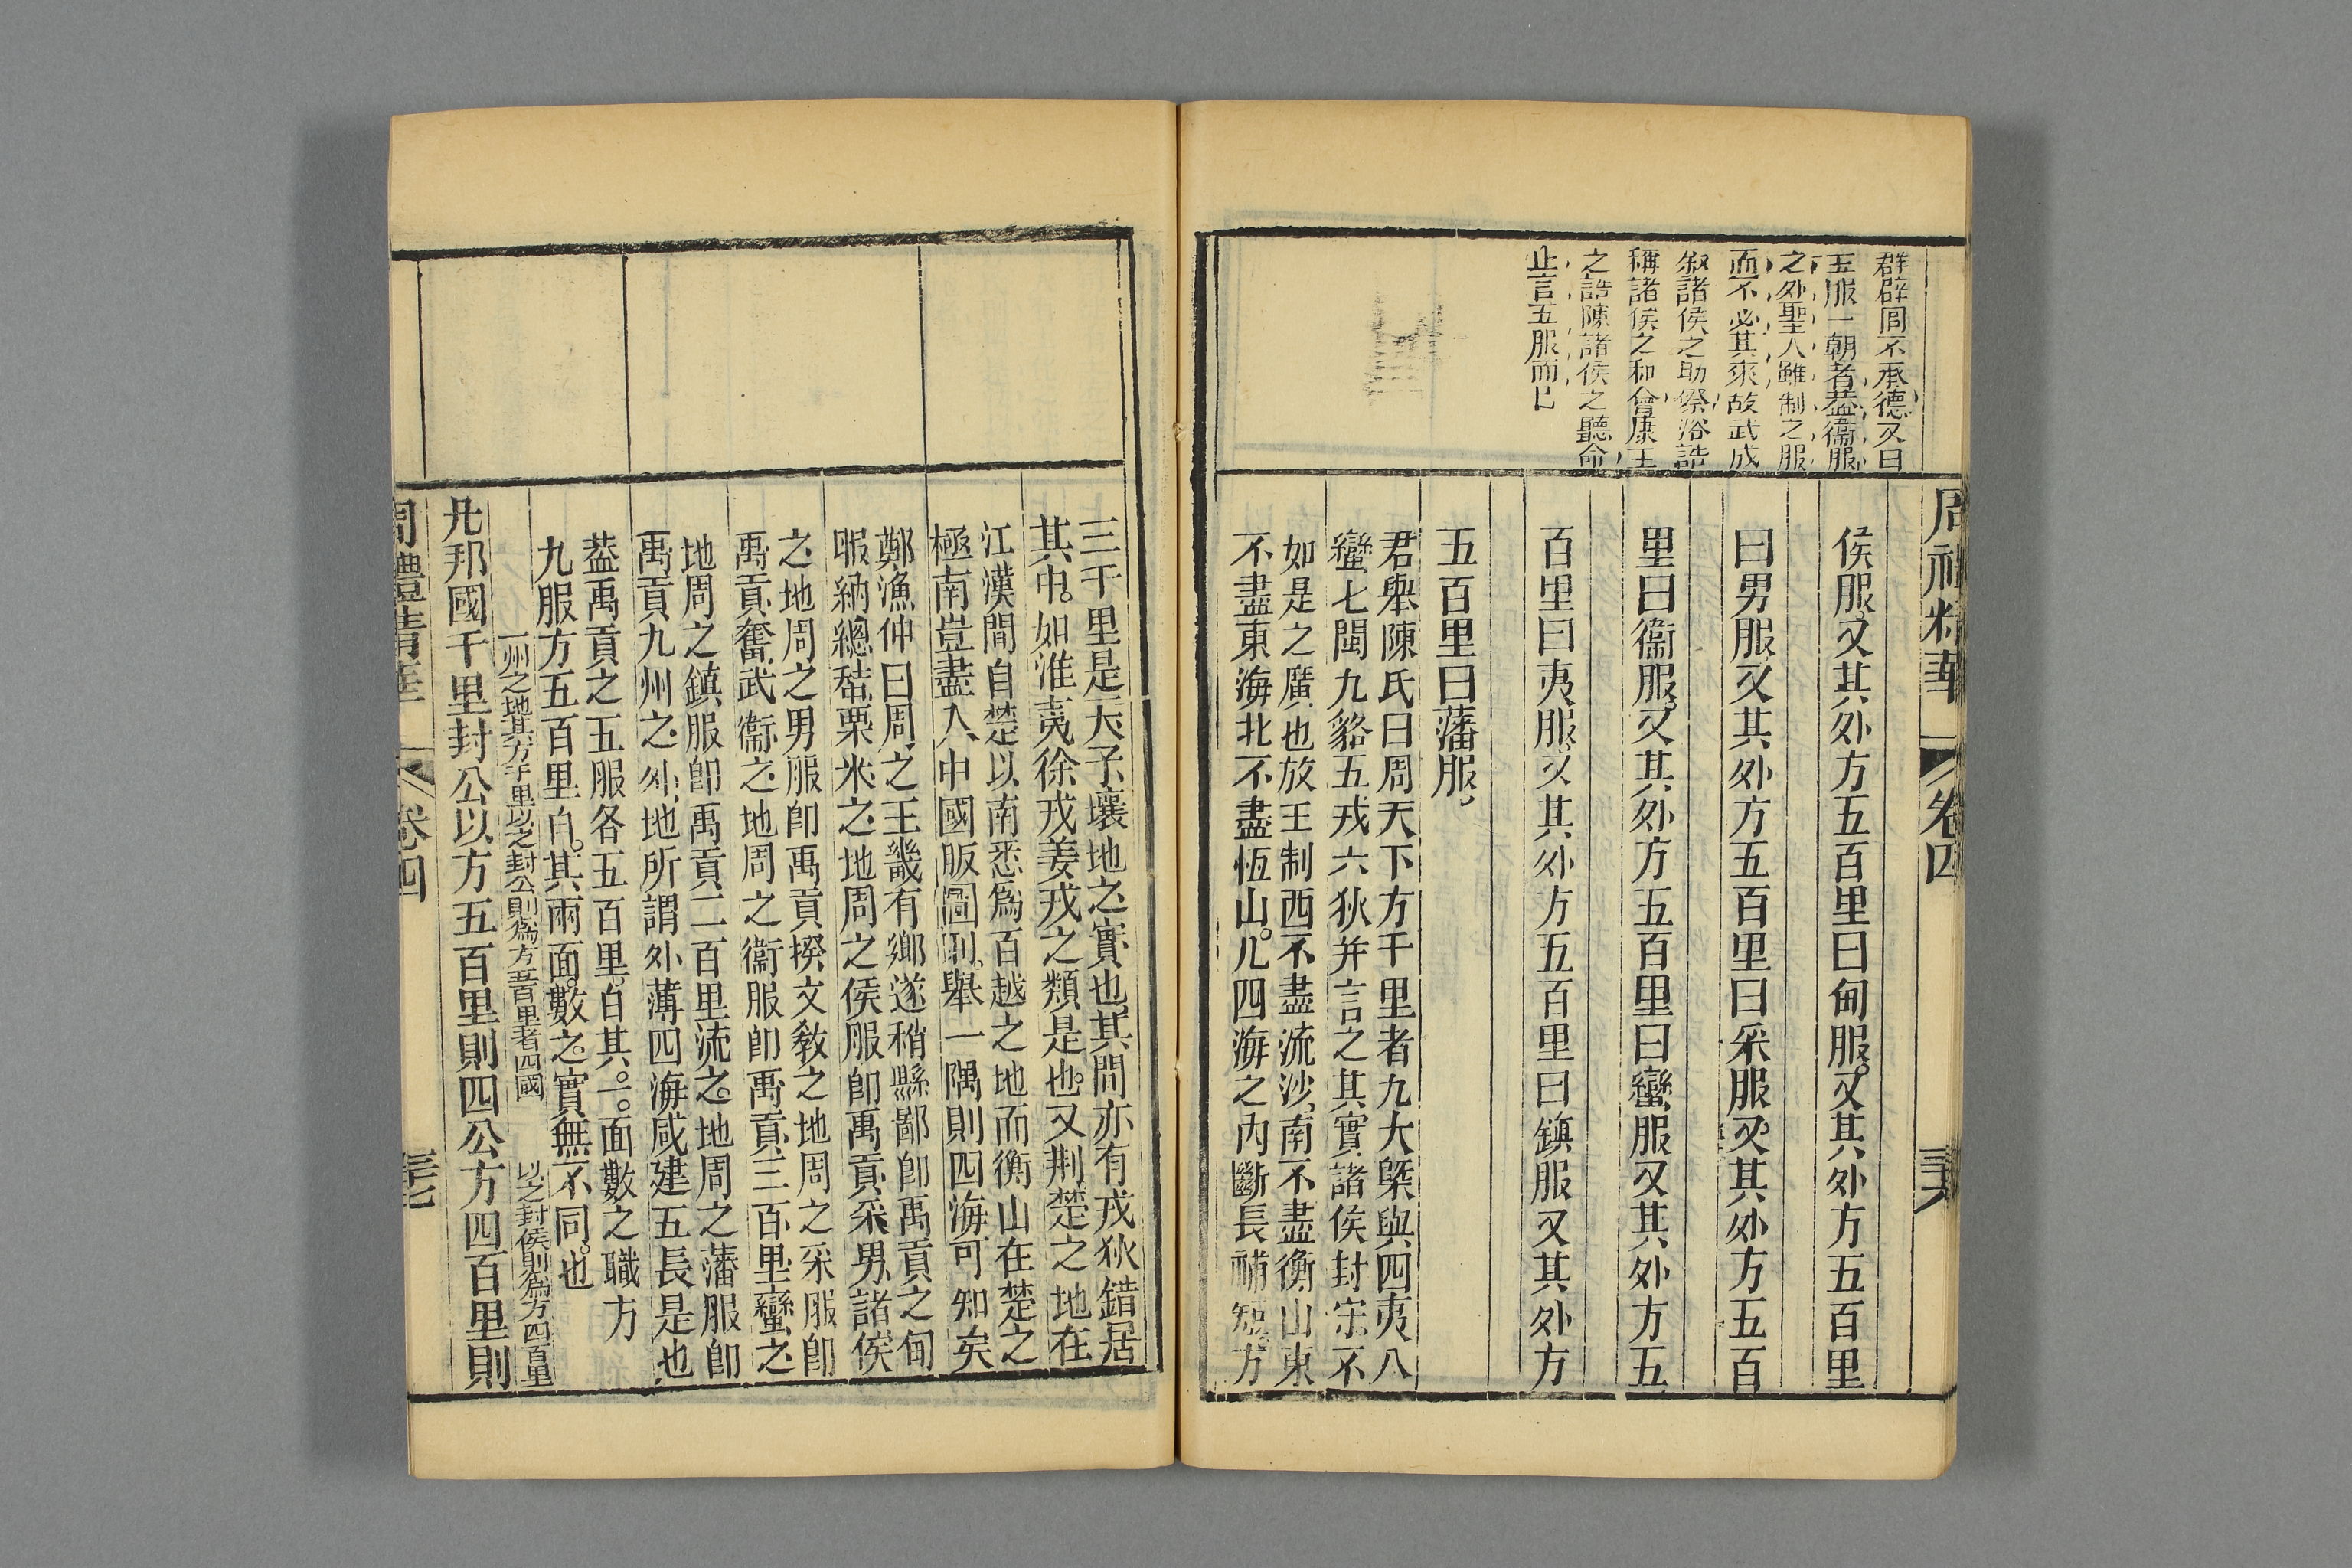 周禮精華
卷四
三六
群辟罔不承德又曰
五服一朝者葢衞服
之外聖人雖制之服
而不必其來故武成
叙諸侯之助祭洛誥
稱諸侯之和會康王
之誥陳諸侯之聽命
止言五服而巳
侯服又其外方五百里曰甸服又其外方五百里
曰男服又其外方五百里曰采服又其外方五百
里曰衞服又其外方五百里曰蠻服又其外方五
百里曰夷服又其外方五百里曰鎮服又其外方
五百里曰藩服
君舉陳氏曰周天下方千里者九大槩與四夷八
蠻七閩九貉五戎六狄并言之其實諸侯封宗不
如是之廣也故王制西不盡流沙南不盡衡山東
不盡東海北不盡恆山凡四海之內斷長補短方
三千里是天子壤地之實也其間亦有戎狄錯居
其中如淮夷徐戎姜戎之類是也又荆楚之地在
江漢間自楚以南悉爲百越之地而衡山在楚之
極南豈盡入中國版圖則舉一隅則四海可知矣
鄭漁仲曰周之王畿有鄉遂稍縣鄙卽禹貢之甸
服納總秸粟米之地周之侯服卽禹貢采男諸侯
之地周之男服卽禹貢揆文敎之地周之采服卽
禹貢奮武衞之地周之衞服卽禹貢三百里蠻之
地周之鎮服卽禹貢二百里流之地周之藩服卽
禹貢九州之外地所謂外薄四海咸建五長是也
葢禹貢之五服各五百里自其一面數之職方
九服方五百里自其兩面數之實無不同也
一州之地其方千里以之封公則爲方五百里者四國
以之封侯則爲方四百里
凡邦國千里封公以方五百里則四公方四百里則
周禮精華
卷四
三七